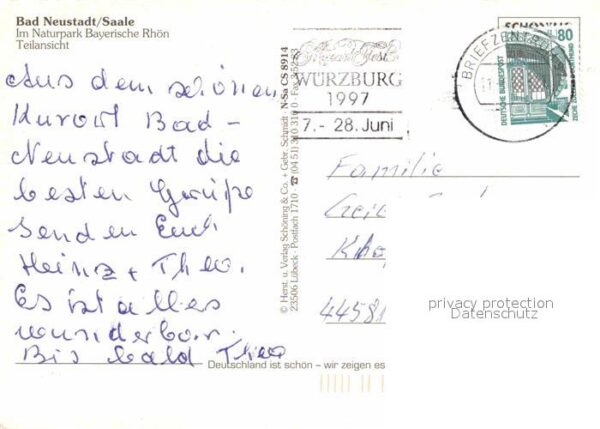 Bad Neustadt/Saale
Im Naturpark Bayerische Rhön
Teilansicht
Aus dem schönen
Kurort Bad-
Neustadt die
besten Grüße
senden Euch
Heinz + Theo.
Es ist alles
wunderbar.
Bis bald Theo
© Herst. u. Verlag Schöning & Co. + Gebr. Schmidt · N-Sa CS 8914
23506 Lübeck · Postfach 1710 · ☎ (04 51) 3 10 31 0
WÜRZBURG
1997
7. - 28. Juni
BRIEFZENTR
80
DEUTSCHE BUNDESPOST
Familie
44581
privacy protection
Datenschutz
Deutschland ist schön – wir zeigen es